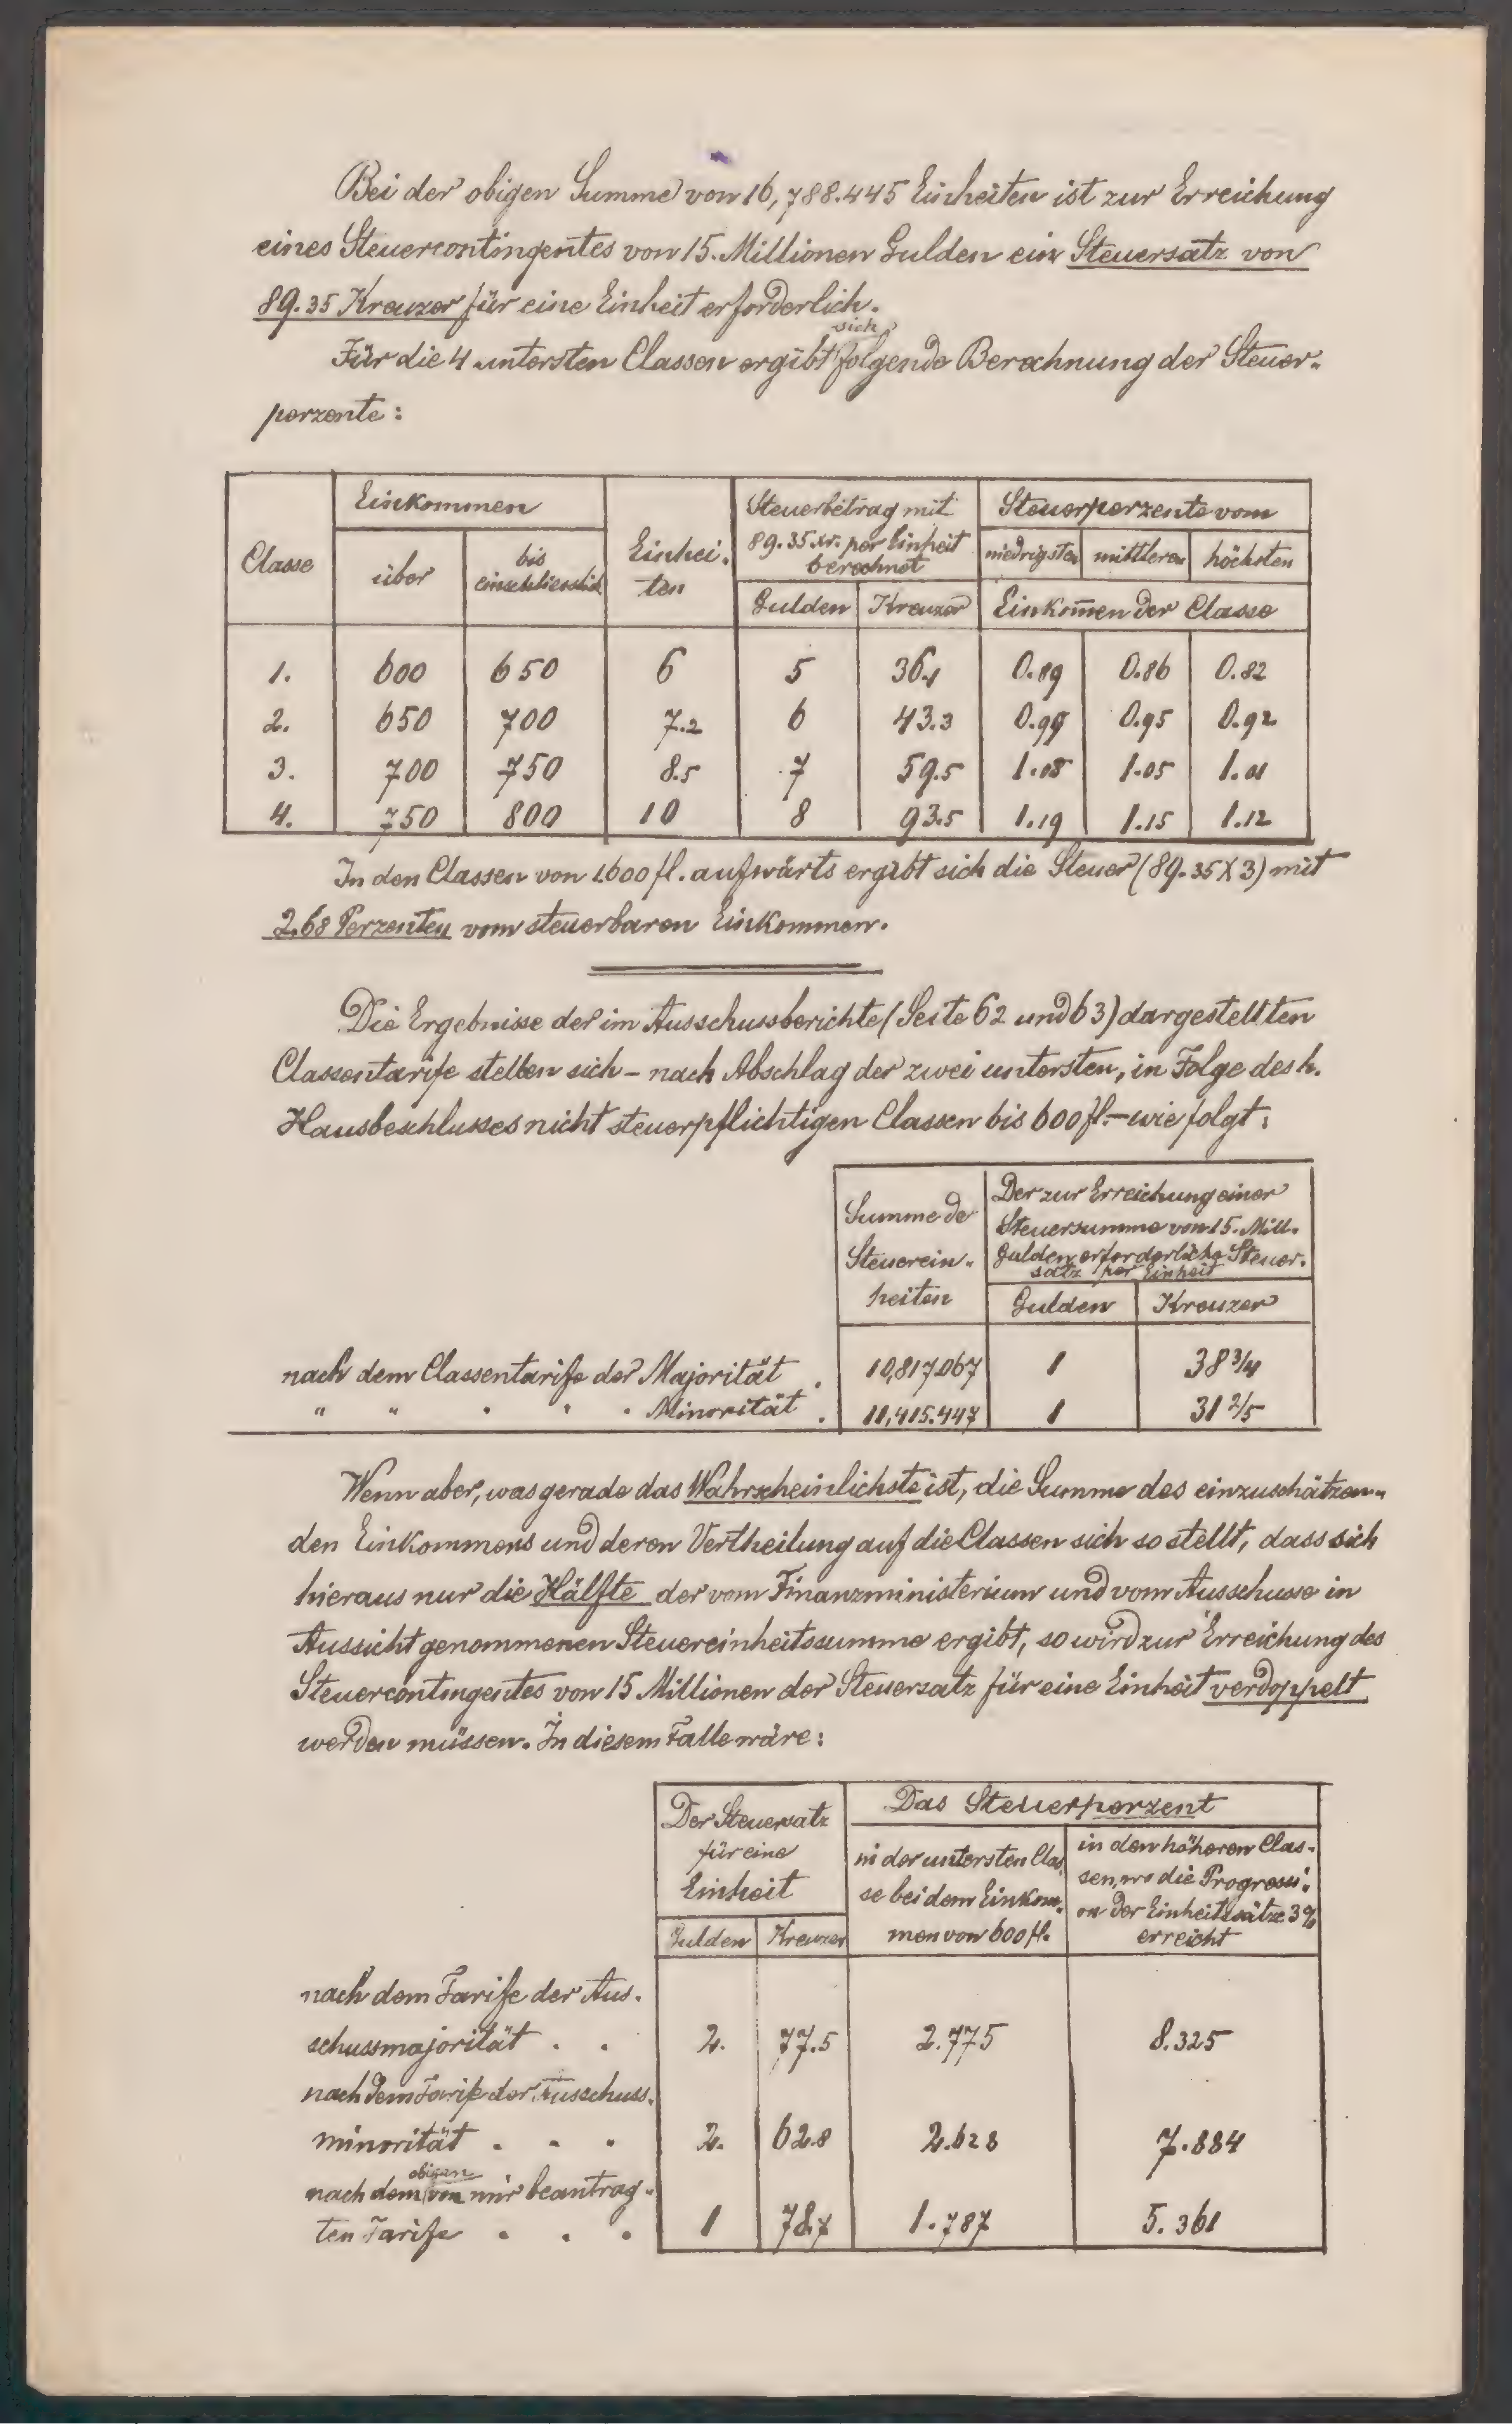 Bei der obigen Summe von 16,788.445 Einheiten ist zur Erreichung
eines Steuercontingentes von 15. Millionen Gulden ein Steuersatz von
89.35 Kreuzer für eine Einheit erforderlich.
Für die 4 untersten Classen ergibt sich folgende Berechnung der Steuer-
perzente:
Classe Einkommen Einhei- ten Steuerbetrag mit 89.35 xr. per Einheit berechnet Steuerperzente vom
über bis einschliesslich niedrigsten mittleren höchsten
Gulden Kreuzer Einkom̄en der Classe
1. 600 650 6 5 36.1 0.89 0.86 0.82
2. 650 700 7.2 6 43.3 0.99 0.95 0.92
3. 700 750 8.5 7 59.5 1.08 1.05 1.01
4. 750 800 10 8 93.5 1.19 1.15 1.12
In den Classen von 1600 fl. aufwärts ergibt sich die Steuer (89.35 X 3) mit
2.68 Perzenten vom steuerbaren Einkommen.
Die Ergebnisse der im Ausschussberichte (Seite 62 und 63) dargestellten
Classentarife stellen sich – nach Abschlag der zwei untersten, in Folge des h.
Hausbeschlusses nicht steuerpflichtigen Classen bis 600 fl. – wie folgt:
Summe de
Steuerein-
heiten
Der zur Erreichung einer
Steuersumme von 15. Mill.
Gulden erforderliche Steuer-
satz per Einheit
Gulden Kreuzer
nach dem Classentarife der Majorität . 10,817.067 1 38 3/4
" " " " " Minorität . 11,415.447 1 31 2/5
Wenn aber, was gerade das Wahrscheinlichste ist, die Summe des einzuschätzen-
den Einkommens und deren Vertheilung auf die Classen sich so stellt, dass sich
hieraus nur die Hälfte der vom Finanzministerium und vom Ausschusse in
Aussicht genommenen Steuereinheitssumme ergibt, so wird zur Erreichung des
Steuercontingentes von 15 Millionen der Steuersatz für eine Einheit verdoppelt
werden müssen. In diesem Falle wäre:
Der Steuersatz
für eine
Einheit
Gulden Kreuzer
Das Steuerperzent
in der untersten Clas-
se bei dem Einkom-
men von 600 fl.
in den höheren Clas-
sen, wo die Progressi-
on der Einheitssätze 3%
erreicht
nach dem Tarife der Aus-
schussmajorität . . 2. 77.5 2.775 8.325
nach dem Tarife der Ausschuss-
minorität . . . 2. 62.8 2.628 7.884
nach dem obigen von mir beantrag-
ten Tarife . . . 1 78.7 1.787 5.361